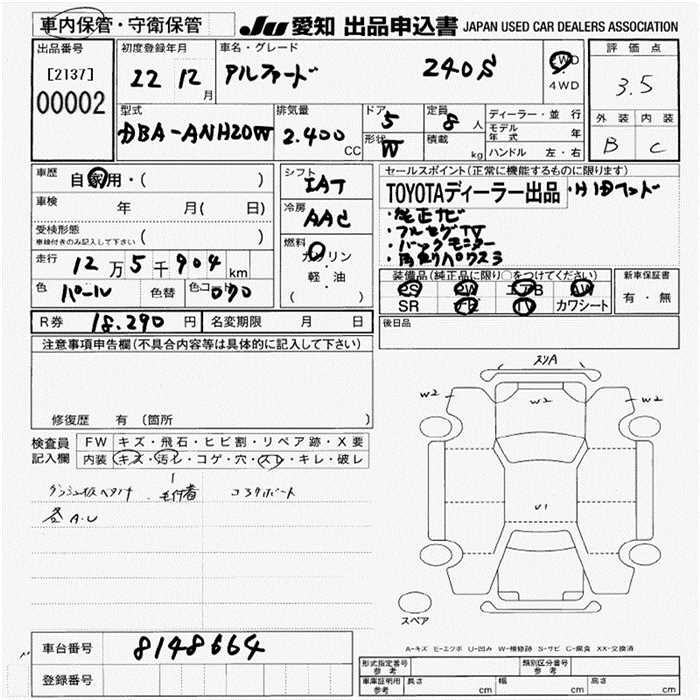 車内保管・守衛保管
JU 愛知 出品申込書 JAPAN USED CAR DEALERS ASSOCIATION
出品番号
[2137]
00002
初度登録年月
22 12月
車名・グレード
アルファード 240S
2WD
・
4WD
評価点
3.5
外装 内装
B C
型式
DBA-ANH20W
排気量
2.400 CC
ドア
5
形状
W
定員
8 人
積載
kg
ディーラー・並行
モデル年式 年
ハンドル 左・右
車歴
自家用・( )
車検 年 月( 日)
受検形態
車検付きのみ記入して下さい ( )
走行 12万5千904km
色 パール 色替 色コード 070
シフト
IAT
冷房
AAC
燃料
ガソリン
・
軽・油
( )
セールスポイント(正常に機能するものに限ります)
TOYOTAディーラー出品
・純正ナビ
・フルセグTV
・バックモニター
装備品(純正品に限り○をつけてください)
PS PW エアB AW
SR ナビ TV カワシート
新車保証書
有・無
R券 18.290 円 名変期限 月 日
後日品
注意事項申告欄(不具合内容等は具体的に記入して下さい)
修復歴 有 (箇所 )
検査員記入欄
FW キズ・飛石・ヒビ割・リペア跡・X要
内装 キズ・汚レ・コゲ・穴・スレ・キレ・破レ
各 A・U
スリA
W2
W2
W2
U1
スペア
A-キズ E-エクボ U-凹み W-補修跡 S-サビ C-腐食 XX-交換済
車台番号 8148664
登録番号
形式指定番号 参考
類別区分番号 参考
車庫証明用 参考 長さ cm 幅 cm 高さ cm